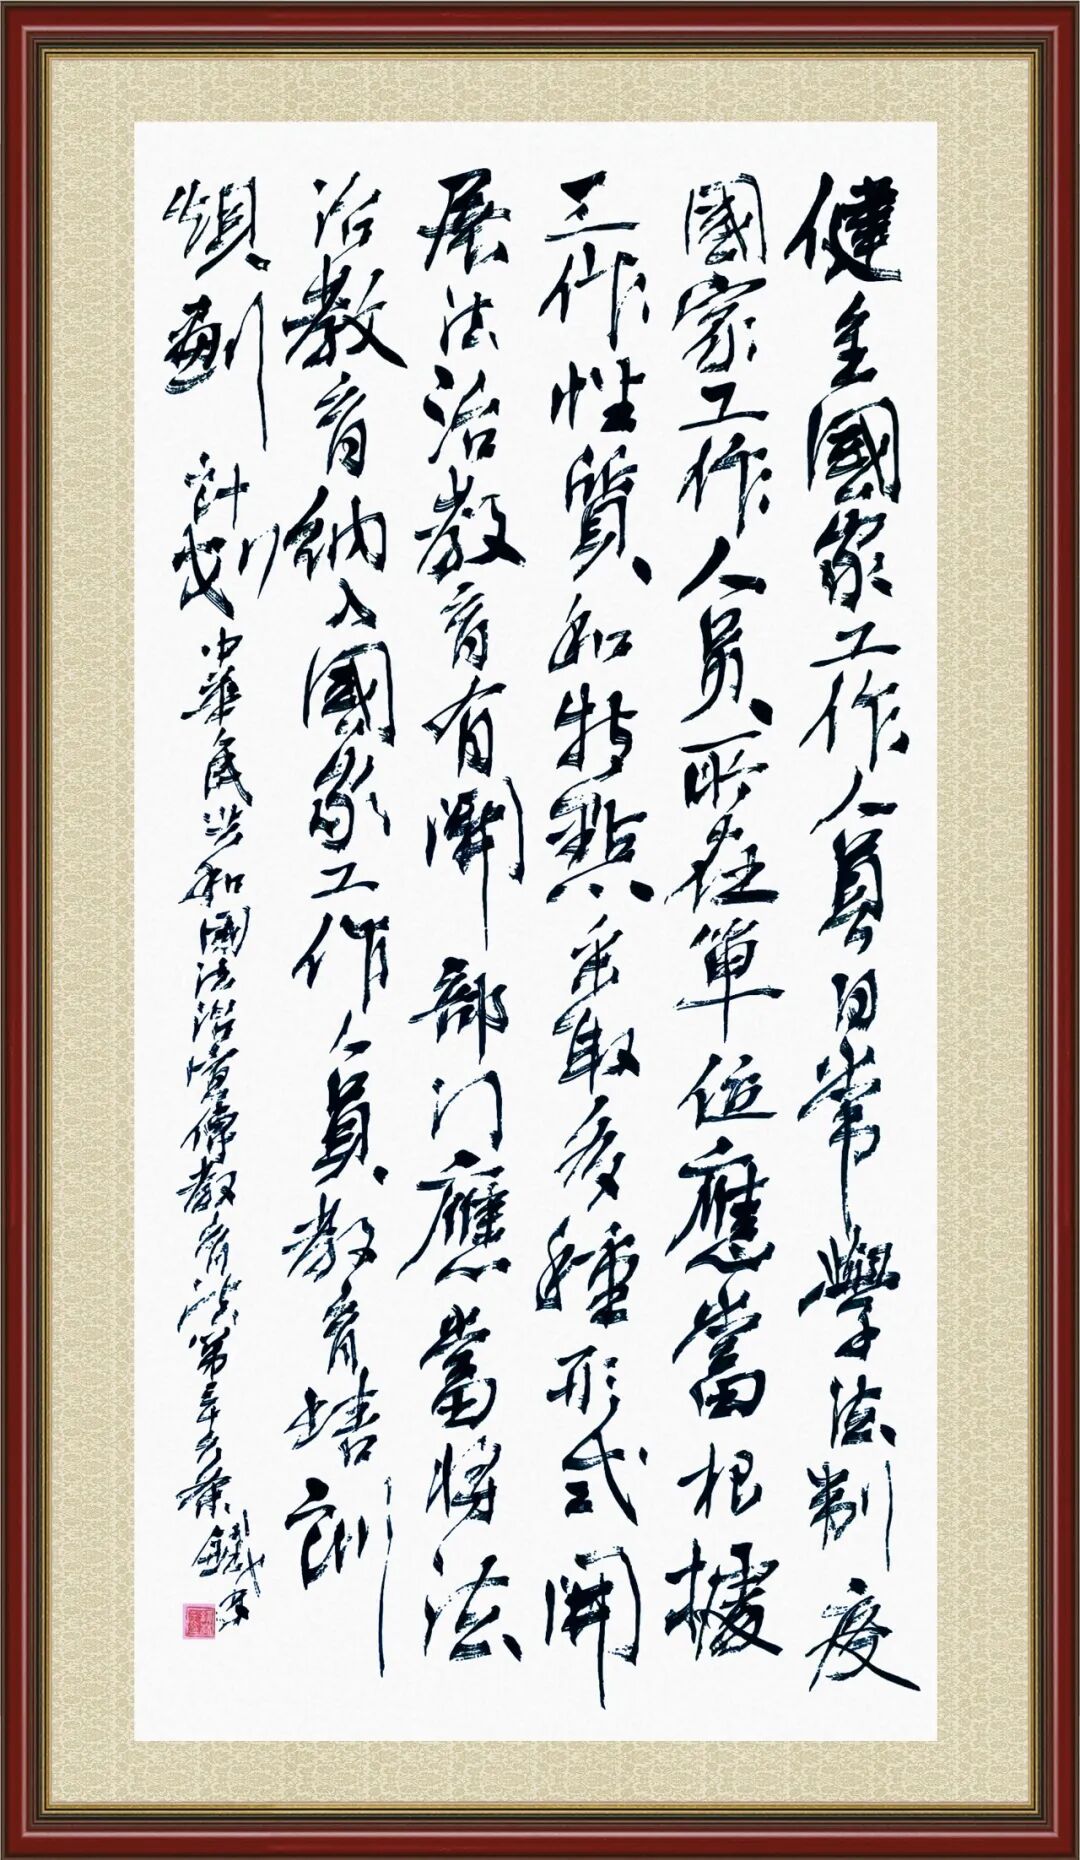 健全國家工作人員日常學法制度
國家工作人員所在單位應當根據
工作性質和特點采取多種形式開
展法治教育有關部门應當將法
治教育納入國家工作人員教育培訓
規劃計劃
中華人民共和國法治宣傳教育法第三十六條